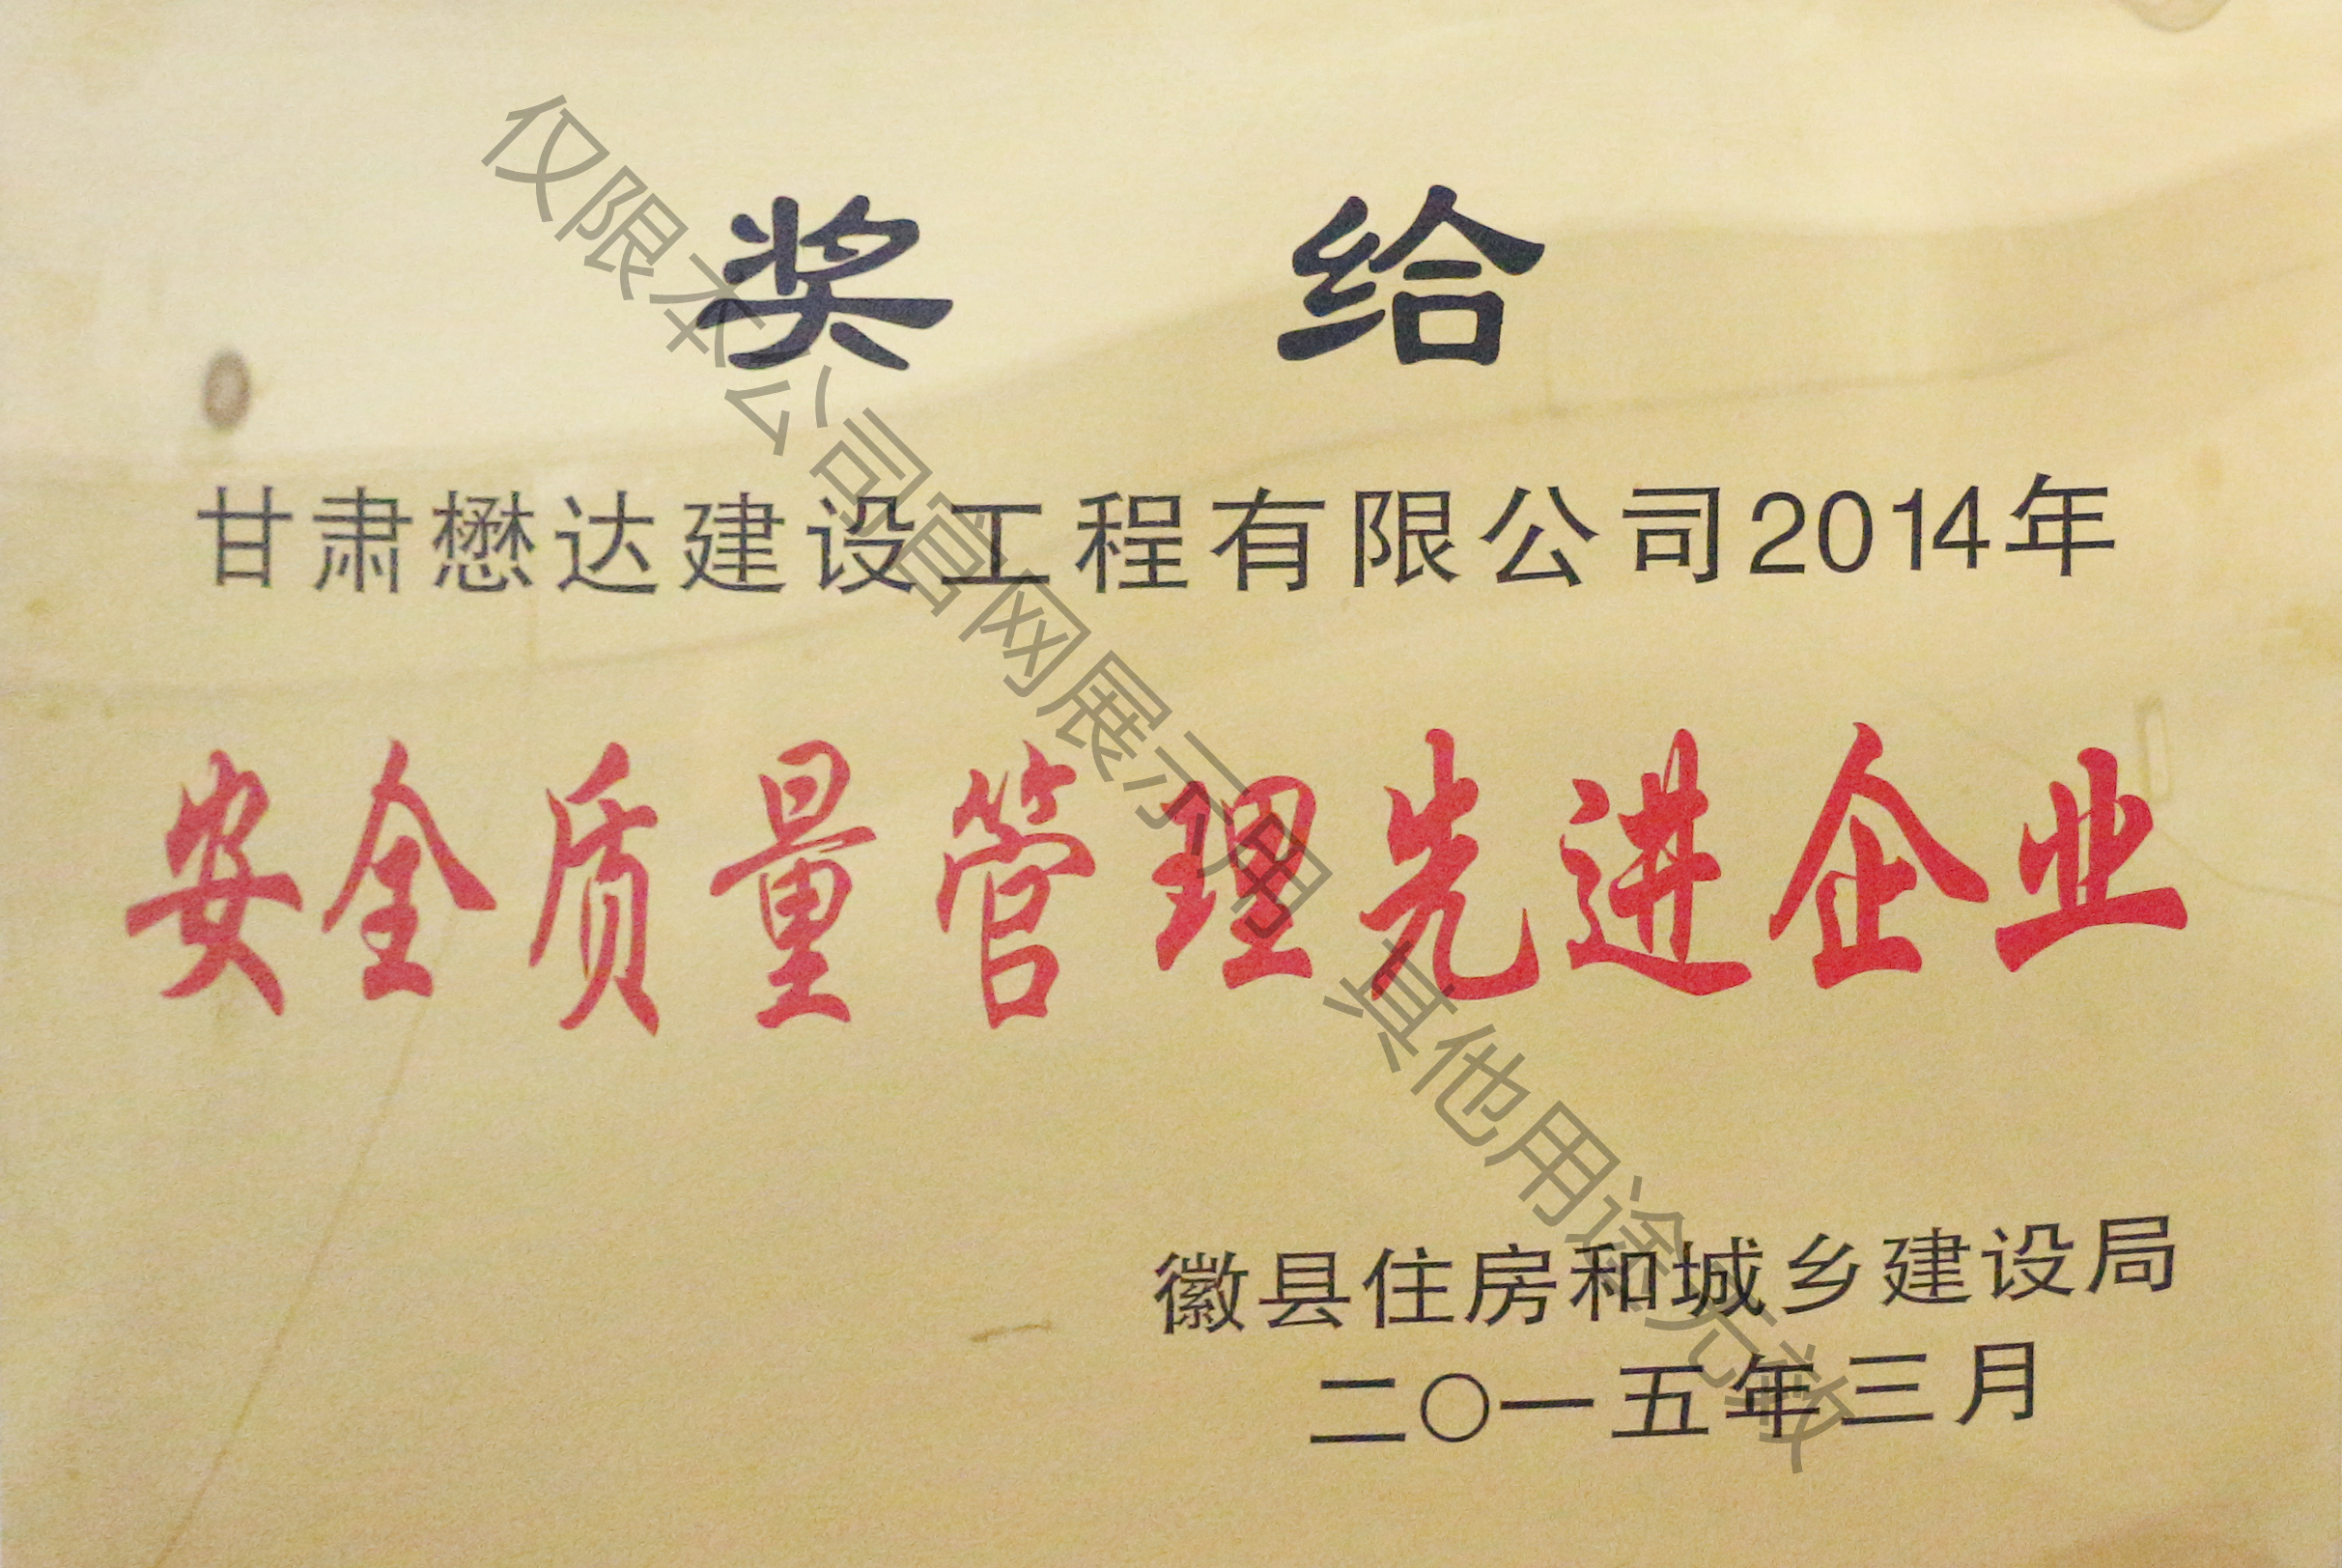 奖 给
甘肃懋达建设工程有限公司2014年
安全质量管理先进企业
徽县住房和城乡建设局
二〇一五年三月
仅限本公司官网展示用 其他用途无效